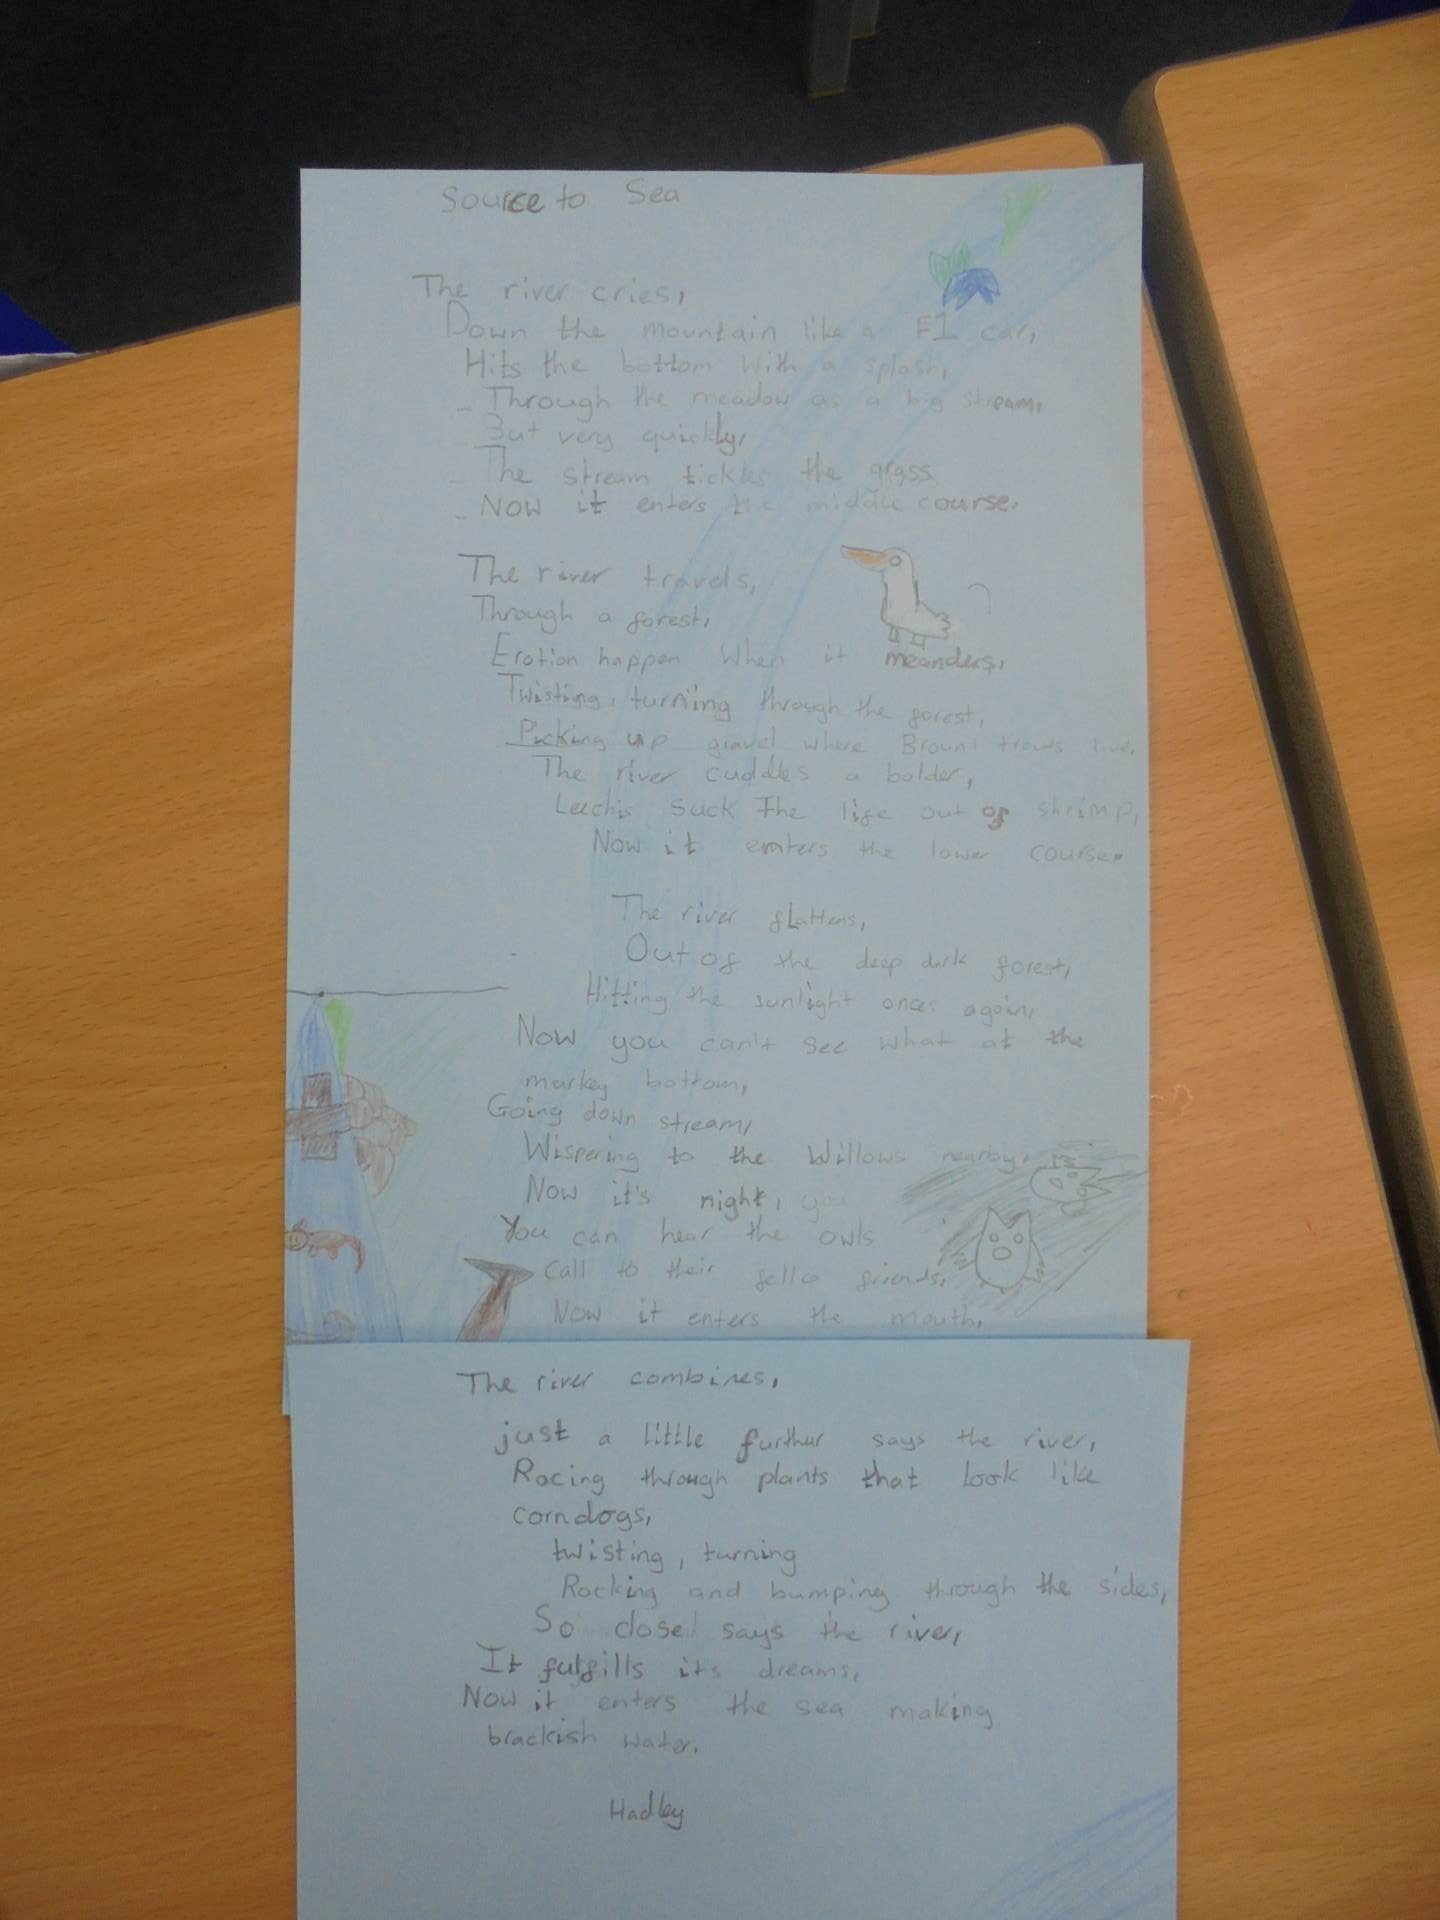 Source to Sea
The river cries,
Down the mountain like a F1 car,
Hits the bottom with a splash,
Through the meadow as a big stream,
But very quickly,
The stream tickles the grass
Now it enters the middle course.
The river travels,
Through a forest,
Erotion happen when it meanders,
Twisting, turning through the forest,
Picking up gravel where Brown trouts live,
The river cuddles a bolder,
Leechis suck the life out of shrimp,
Now it enters the lower course.
The river flattens,
Out of the deep dark forest,
Hitting the sunlight onces again,
Now you can't see what at the
murkey bottom,
Going down stream,
Wispering to the Willows nearby,
Now it's night, you
You can hear the owls
Call to their fello friends,
Now it enters the mouth,
The river combines,
just a little furthur says the river,
Racing through plants that look like
corndogs,
twisting, turning
Rocking and bumping through the sides,
So close! says the river,
It fulfills its dreams,
Now it enters the sea making
brackish water.
Hadley